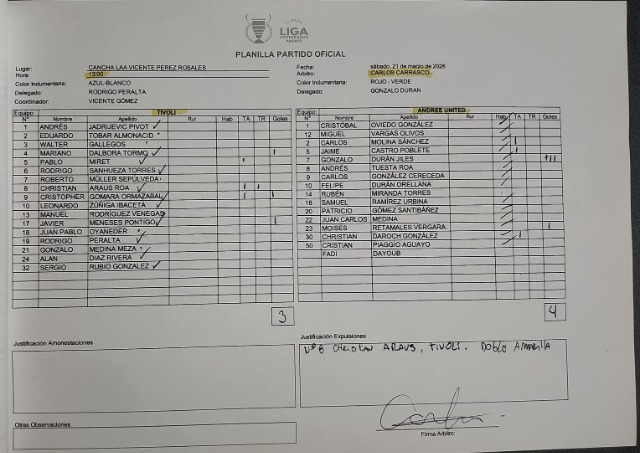 LIGA
PLANILLA PARTIDO OFICIAL
Lugar: CANCHA LAA VICENTE PEREZ ROSALES
Hora: 13:00
Color Indumentaria: AZUL-BLANCO
Delegado: RODRIGO PERALTA
Coordinador: VICENTE GÓMEZ
Fecha: sábado, 21 de marzo de 2026
Arbitro: CARLOS CARRASCO
Color Indumentaria: ROJO - VERDE
Delegado: GONZALO DURAN
Equipo: TIVOLI
N° Nombre Apellido Rut Hab TA TR Goles
1 ANDRÉS JADRIJEVIC PIVOT
2 EDUARDO TOBAR ALMONACID
3 WALTER GALLEGOS
4 MARIANO DALBORA TORMO
5 PABLO MIRET
6 RODRIGO SANHUEZA TORRES
7 ROBERTO MÜLLER SEPÚLVEDA
8 CHRISTIAN ARAUS ROA
9 CRISTOPHER GOMARA ORMAZABAL
10 LEONARDO ZÚÑIGA IBACETA
13 MANUEL RODRÍGUEZ VENEGAS
17 JAVIER MENESES PONTIGO
18 JUAN PABLO OYANEDER
19 RODRIGO PERALTA
21 GONZALO MEDINA MEZA
24 ALAN DIAZ RIVERA
32 SERGIO RUBIO GONZALEZ
3
Equipo: ANDREE UNITED
N° Nombre Apellido Rut Hab TA TR Goles
1 CRISTÓBAL OVIEDO GONZÁLEZ
12 MIGUEL VARGAS OLIVOS
2 CARLOS MOLINA SÁNCHEZ
5 JAIME CASTRO POBLETE
7 GONZALO DURÁN JILES
8 ANDRÉS TUESTA ROA
9 CARLOS GONZÁLEZ CERECEDA
10 FELIPE DURÁN ORELLANA
14 RUBÉN MIRANDA TORRES
18 SAMUEL RAMÍREZ URBINA
20 PATRICIO GÓMEZ SANTIBÁÑEZ
22 JUAN CARLOS MEDINA
23 MOISÉS RETAMALES VERGARA
30 CHRISTIAN DAROCH GONZÁLEZ
50 CRISTIAN PIAGGIO AGUAYO
FADI DAYOUB
4
Justificación Amonestaciones
Justificación Expulsiones
N°8 CHRISTIAN ARAUS, TIVOLI. DOBLE AMARILLA
Otras Observaciones
Firma Arbitro: